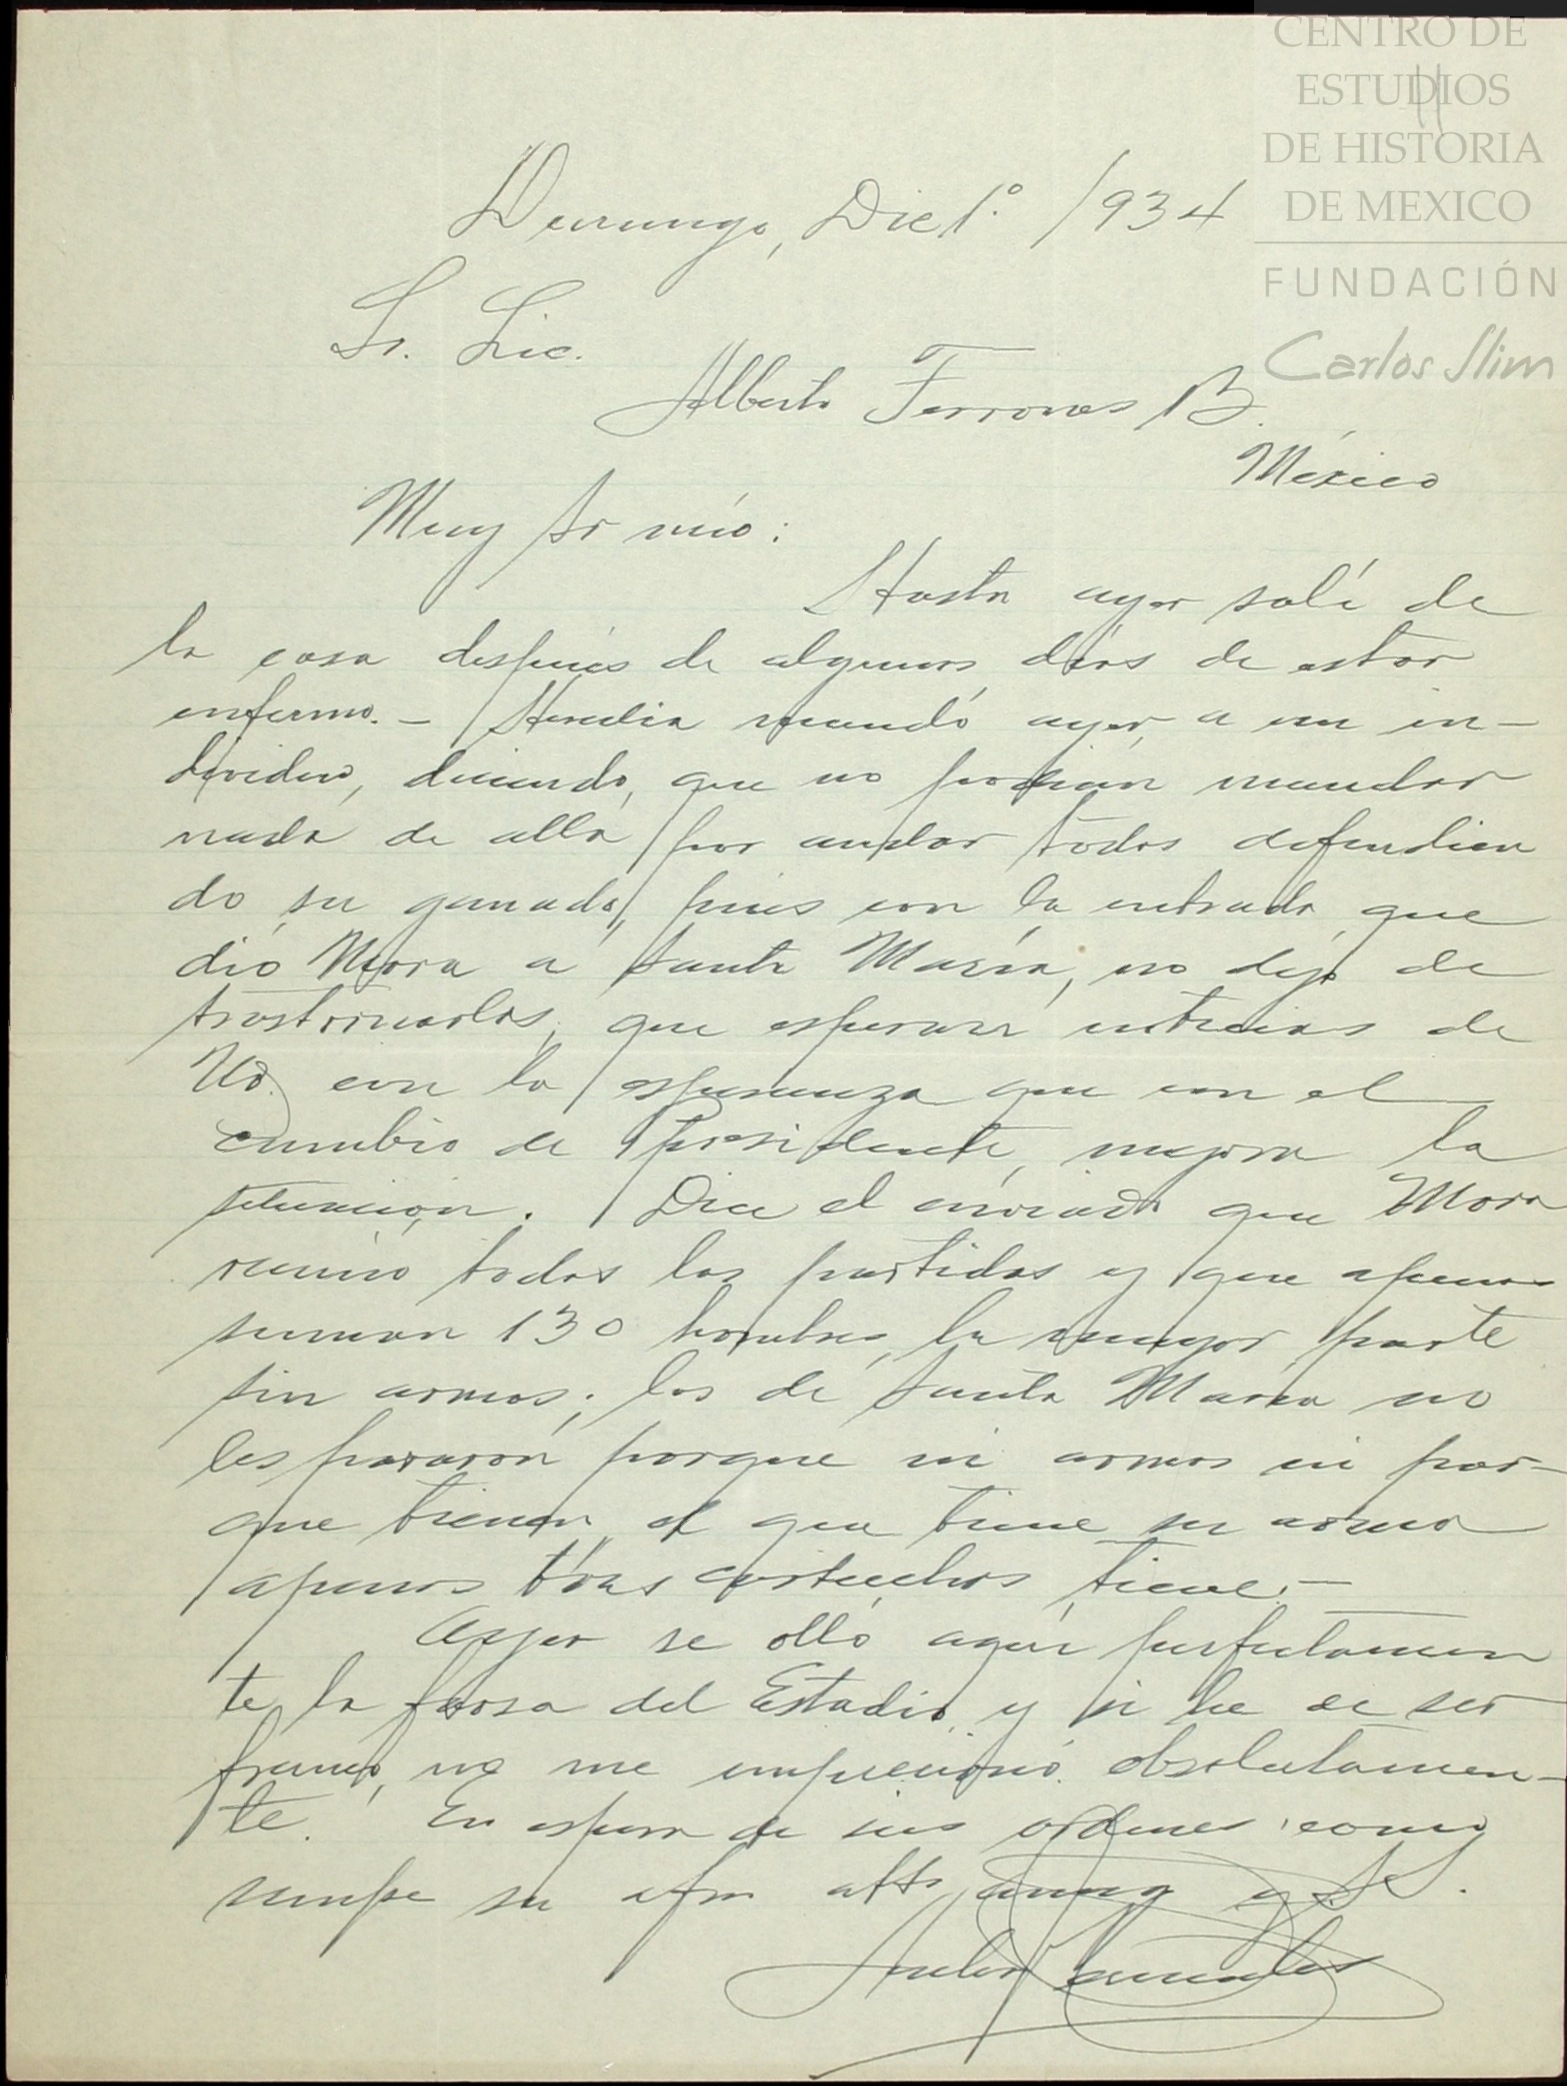 CENTRO DE
ESTUDIOS
DE HISTORIA
DE MEXICO
FUNDACIÓN
Carlos Slim
Durango, Dic 1º. 1934
Sr. Lic.
Alberto Terrones B.
México
Muy Sr mío:
Hasta ayer salí de
la casa despues de algunos dias de estar
enfermo. - Heredia mandó ayer, a un in-
dividuo, diciendo, que no podian mandar
nada de alla por andar todos defendien
do su ganado, pues con la entrada que
dio Mora a Santa María, no dejo de
trastornarlos, que esperan noticias de
Ud. con la esperanza que con el
cambio de Presidente, mejora la
situación. Dice el enviado que Mora
reunio todas las partidas y que apenas
suman 130 hombres, la mayor parte
sin armas; los de Santa Maria no
les pararon porque ni armas ni par-
que tienen, el que tiene su arma
apenas tres cartuchos tiene.-
Ayer se olló aqui perfectamen
te la farsa del Estadio, y si he de ser
franco, no me impreciono absolutamen-
te. En espera de sus ordenes como
siempe su afm atto amigo y S.S.